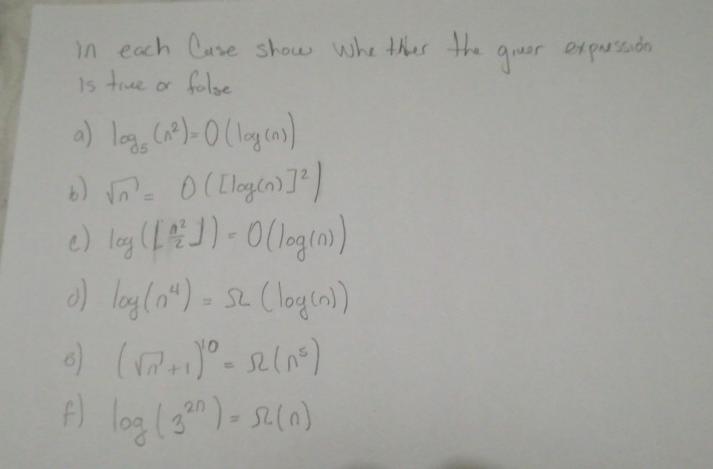 in each Case show whether the giver expression
is true or false
a) log₅(n²)=O(log(n))
b) √n = O([log(n)]²)
c) log(⌊n²/2⌋) = O(log(n))
d) log(n⁴) = Ω(log(n))
e) (√n+1)¹⁰ = Ω(n⁵)
f) log(3²ⁿ) = Ω(n)